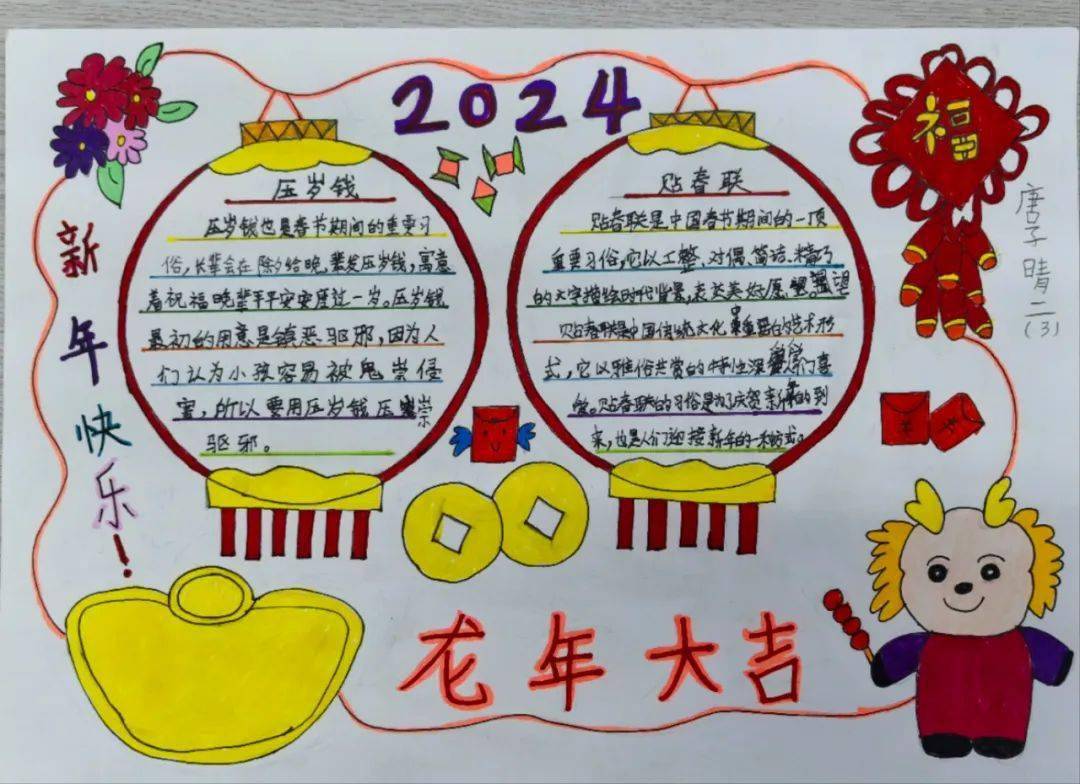 2024
福
新年快乐!
压岁钱
压岁钱也是春节期间的重要习
俗,长辈会在除夕给晚辈发压岁钱,寓意
着祝福晚辈平平安安度过一岁。压岁钱
最初的用意是镇恶驱邪,因为人
们认为小孩容易被鬼祟侵
害,所以要用压岁钱压祟
驱邪。
贴春联
贴春联是中国春节期间的一项
重要习俗,它以工整、对偶、简洁、精巧
的文字描绘时代背景,表达美好愿望。
贴春联是中国传统文化中重要的艺术形
式,它以雅俗共赏的特性深受人们喜
爱。贴春联的习俗是为了庆贺新年的到
来,也是人们迎接新年的一种方式。
唐子晴二(3)
龙年大吉